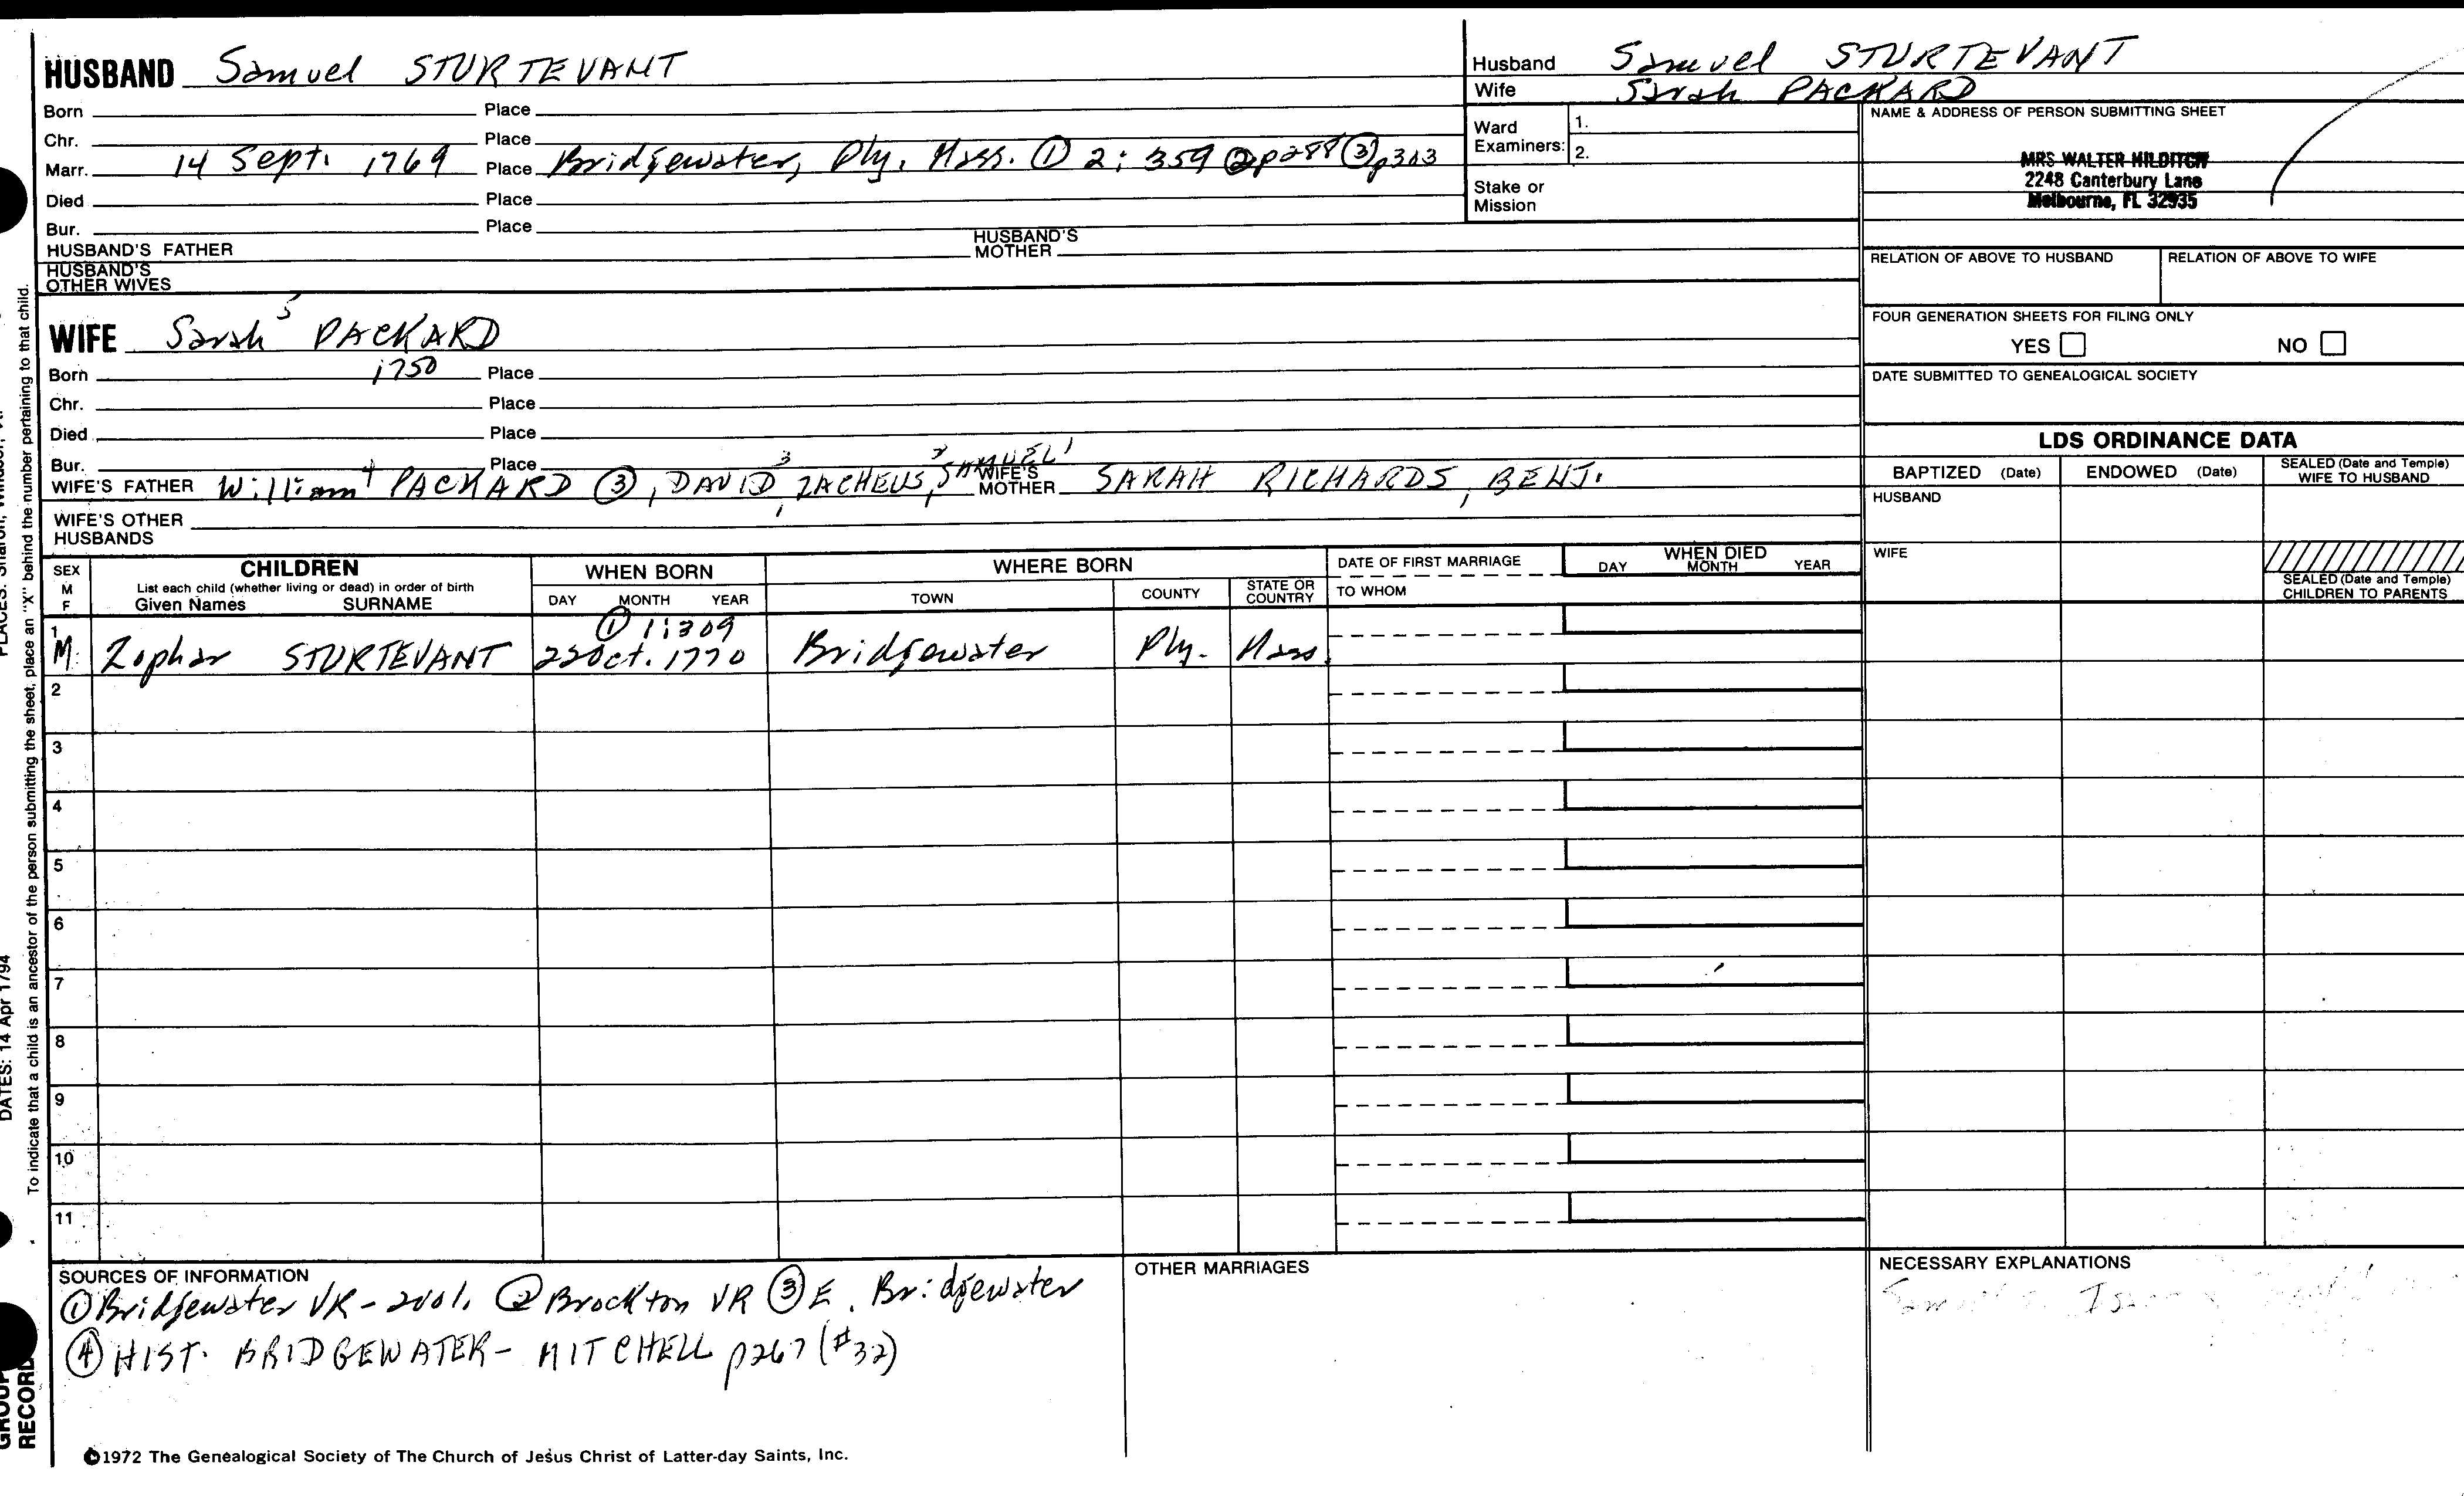 HUSBAND Samuel STURTEVANT
Born Place
Chr. Place
Marr. 14 Sept. 1769 Place Bridgewater, Ply. Mass. ① 2: 359 ② p288 ③ p303
Died Place
Bur. Place
HUSBAND'S FATHER HUSBAND'S MOTHER
HUSBAND'S OTHER WIVES
Husband Samuel STURTEVANT
Wife Sarah PACKARD
Ward Examiners: 1.
2.
Stake or Mission
NAME & ADDRESS OF PERSON SUBMITTING SHEET
MRS WALTER HILDITCH
2248 Canterbury Lane
Melbourne, FL 32935
RELATION OF ABOVE TO HUSBAND RELATION OF ABOVE TO WIFE
FOUR GENERATION SHEETS FOR FILING ONLY
YES NO
DATE SUBMITTED TO GENEALOGICAL SOCIETY
WIFE Sarah 5 PACKARD
Born 1750 Place
Chr. Place
Died Place
Bur. Place
WIFE'S FATHER William 4 PACKARD ③, DAVID 3, ZACHEUS 2, SAMUEL 1 WIFE'S MOTHER SARAH RICHARDS, BENJ.
WIFE'S OTHER HUSBANDS
LDS ORDINANCE DATA
BAPTIZED (Date) ENDOWED (Date) SEALED (Date and Temple) WIFE TO HUSBAND
HUSBAND
WIFE
SEALED (Date and Temple) CHILDREN TO PARENTS
SEX M F
CHILDREN
List each child (whether living or dead) in order of birth
Given Names SURNAME
WHEN BORN
DAY MONTH YEAR
WHERE BORN
TOWN COUNTY STATE OR COUNTRY
DATE OF FIRST MARRIAGE
TO WHOM
WHEN DIED
DAY MONTH YEAR
① 1:309
1 M Zophar STURTEVANT 22 Oct. 1770 Bridgewater Ply. Mass.
2
3
4
5
6
7
8
9
10
11
SOURCES OF INFORMATION
① Bridgewater VR - 2 vol. ② Brockton VR ③ E. Bridgewater
④ HIST. BRIDGEWATER - MITCHELL p267 (#32)
OTHER MARRIAGES
NECESSARY EXPLANATIONS
©1972 The Genealogical Society of The Church of Jesus Christ of Latter-day Saints, Inc.
To indicate that a child is an ancestor of the person submitting the sheet, place an "X" behind the number pertaining to that child.
DATES: 14 Apr 1794
PLACES: Sharon, Windsor,
GROUP
RECORD